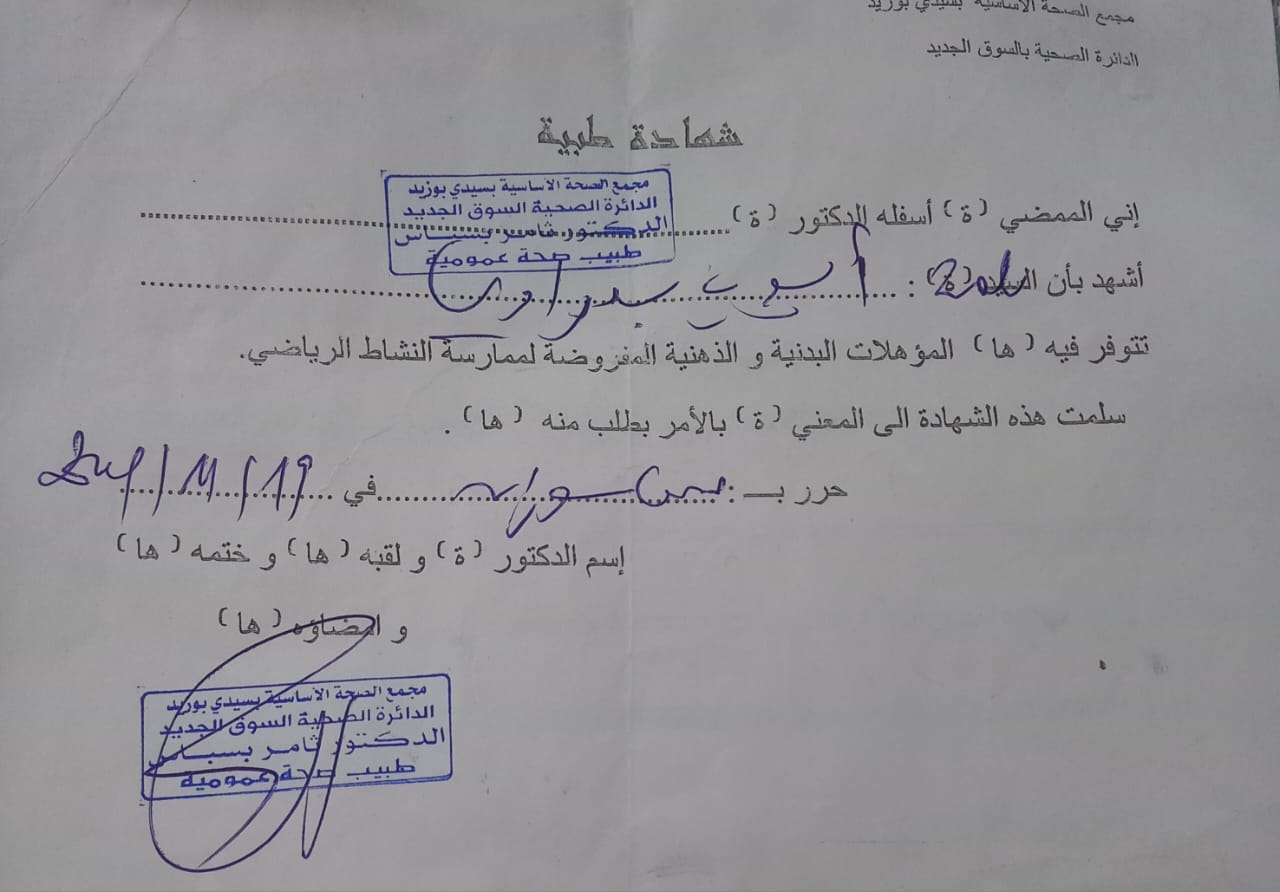 مجمع الصحة الأساسية بسيدي بوزيد
الدائرة الصحية بالسوق الجديد
شهادة طبية
مجمع الصحة الأساسية بسيدي بوزيد
الدائرة الصحية السوق الجديد
الدكتور ثامر بسباس
طبيب صحة عمومية
إني الممضي (ة) أسفله الدكتور (ة)
أشهد بأن السيد (ة) : أيوب
تتوفر فيه (ها) المؤهلات البدنية و الذهنية المفروضة لممارسة النشاط الرياضي.
سلمت هذه الشهادة الى المعني (ة) بالأمر بطلب منه (ها) .
حرر بـ : في 19/11/
إسم الدكتور (ة) و لقبه (ها) و ختمه (ها)
و امضاؤه (ها)
مجمع الصحة الأساسية بسيدي بوزيد
الدائرة الصحية السوق الجديد
الدكتور ثامر بسباس
طبيب صحة عمومية